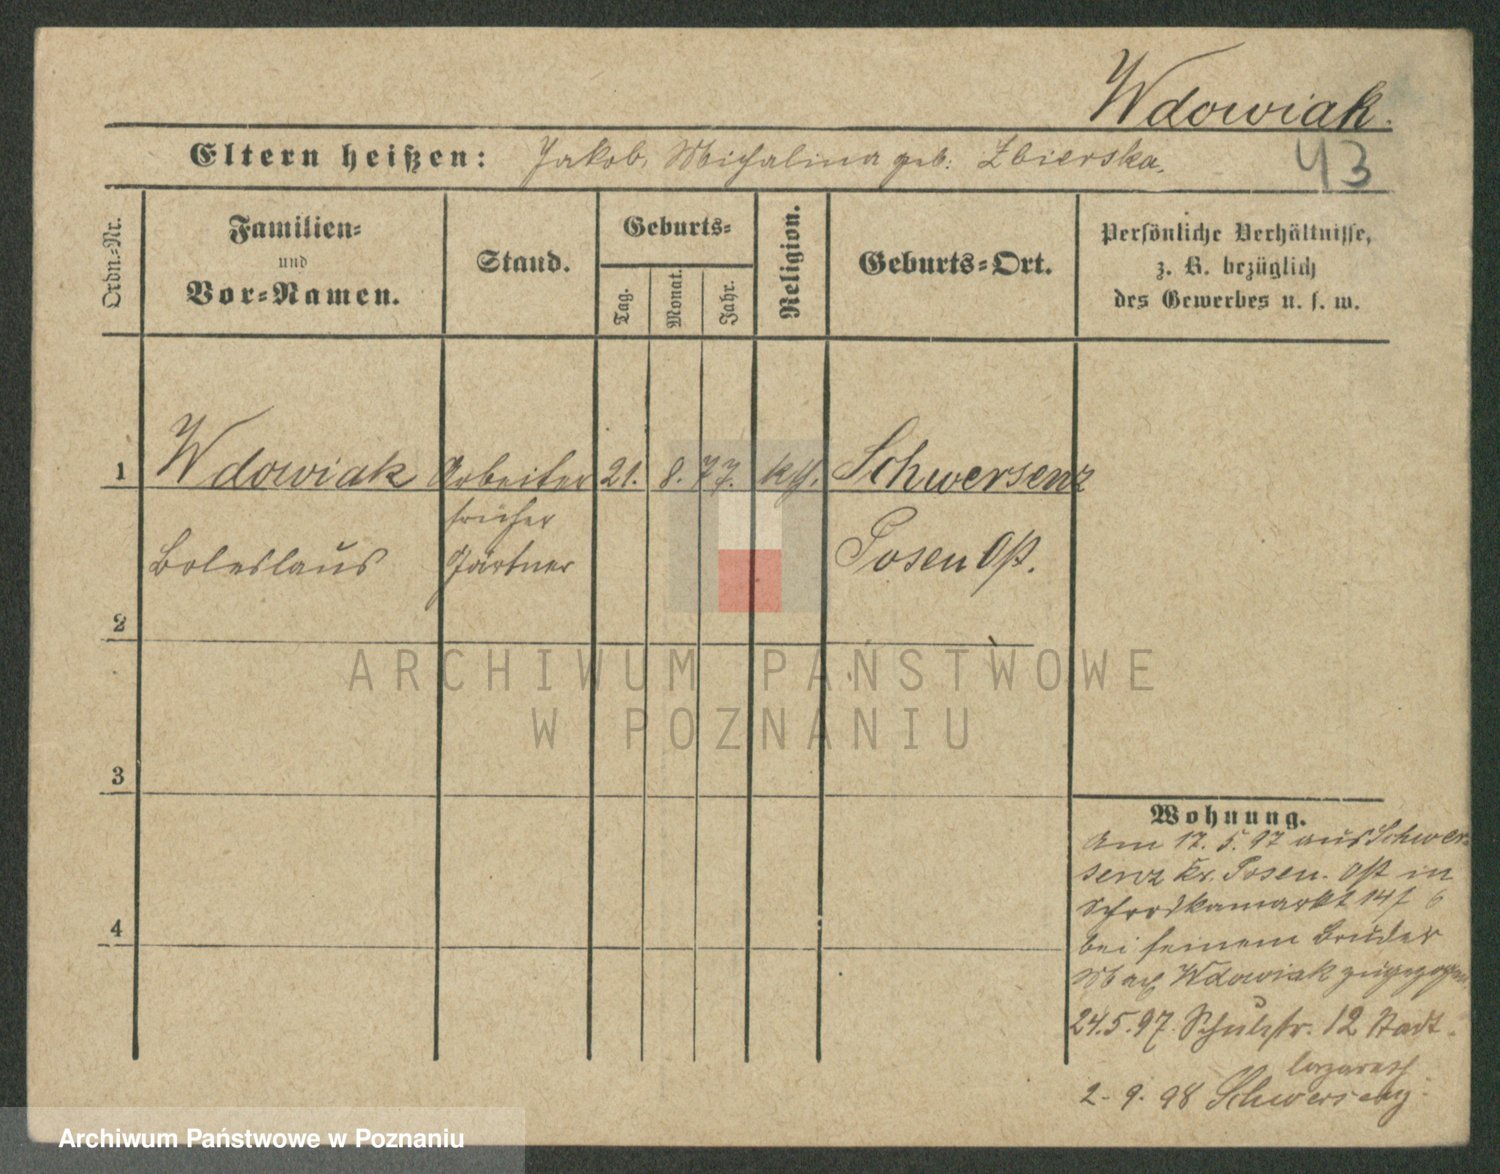 Wdowiak.
Eltern heißen: Jakob, Michalina geb: Zbierska.
43
Ordn.-Nr.
Familien-
und
Vor-Namen.
Stand.
Geburts-
Tag.
Monat.
Jahr.
Religion.
Geburts-Ort.
Persönliche Verhältnisse,
z. B. bezüglich
des Gewerbes u. s. w.
1 Wdowiak Arbeiter 21. 8. 77. kth. Schwersenz
früher
Boleslaus Gärtner Posen Ost.
2
3
4
Wohnung.
Am 17. 5. 97 aus Schwer-
senz Kr. Posen. Ost in
Schrodkamarkt 14
bei seinem Bruder
Wdowiak zugezogen
24.5.97. Schulstr. 12 Stadt-
lazareth
2. 9. 98 Schwersenz.
ARCHIWUM PAŃSTWOWE
W POZNANIU
Archiwum Państwowe w Poznaniu